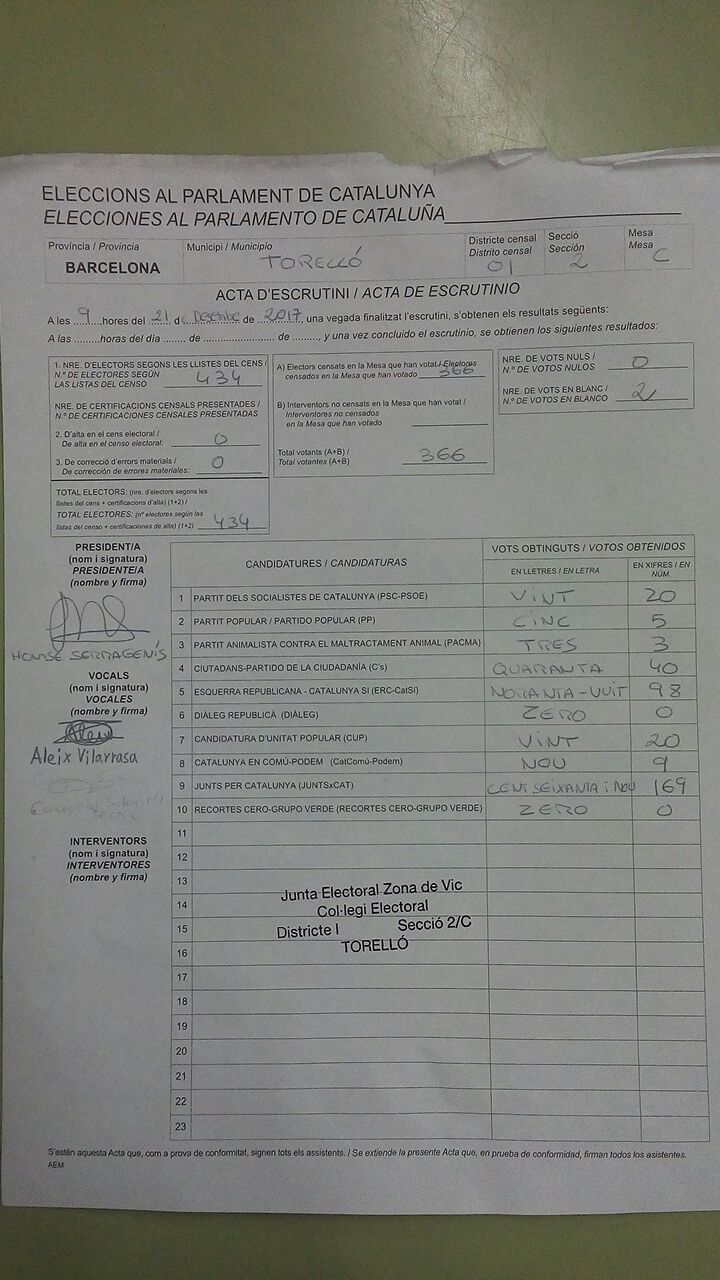 ELECCIONS AL PARLAMENT DE CATALUNYA
ELECCIONES AL PARLAMENTO DE CATALUÑA
Província / Provincia
BARCELONA
Municipi / Municipio
TORELLÓ
Districte censal
Distrito censal
01
Secció
Sección
2
Mesa
Mesa
C
ACTA D'ESCRUTINI / ACTA DE ESCRUTINIO
A les 9 hores del 21 de Desembre de 2017, una vegada finalitzat l'escrutini, s'obtenen els resultats següents:
A las ........horas del día ....... de ....................... de ........, y una vez concluido el escrutinio, se obtienen los siguientes resultados:
1. NRE. D'ELECTORS SEGONS LES LLISTES DEL CENS /
N.º DE ELECTORES SEGÚN
LAS LISTAS DEL CENSO 434
NRE. DE CERTIFICACIONS CENSALS PRESENTADES /
N.º DE CERTIFICACIONES CENSALES PRESENTADAS
2. D'alta en el cens electoral /
De alta en el censo electoral: 0
3. De correcció d'errors materials /
De corrección de errores materiales: 0
TOTAL ELECTORS: (nre. d'electors segons les
llistes del cens + certificacions d'alta) (1+2) /
TOTAL ELECTORES: (nº electores según las
listas del censo + certificaciones de alta) (1+2) 434
A) Electors censats en la Mesa que han votat / Electores
censados en la Mesa que han votado 366
B) Interventors no censats en la Mesa que han votat /
Interventores no censados
en la Mesa que han votado
Total votants (A+B) /
Total votantes (A+B) 366
NRE. DE VOTS NULS /
N.º DE VOTOS NULOS 0
NRE. DE VOTS EN BLANC /
N.º DE VOTOS EN BLANCO 2
PRESIDENT/A
(nom i signatura)
PRESIDENTE/A
(nombre y firma)
MONTSE SERRAGENÍS
VOCALS
(nom i signatura)
VOCALES
(nombre y firma)
Aleix Vilarrasa
INTERVENTORS
(nom i signatura)
INTERVENTORES
(nombre y firma)
CANDIDATURES / CANDIDATURAS
VOTS OBTINGUTS / VOTOS OBTENIDOS
EN LLETRES / EN LETRA
EN XIFRES / EN NÚM.
1 PARTIT DELS SOCIALISTES DE CATALUNYA (PSC-PSOE) VINT 20
2 PARTIT POPULAR / PARTIDO POPULAR (PP) CINC 5
3 PARTIT ANIMALISTA CONTRA EL MALTRACTAMENT ANIMAL (PACMA) TRES 3
4 CIUTADANS-PARTIDO DE LA CIUDADANÍA (C's) QUARANTA 40
5 ESQUERRA REPUBLICANA - CATALUNYA SI (ERC-CatSí) NORANTA-VUIT 98
6 DIÀLEG REPUBLICÀ (DIÀLEG) ZERO 0
7 CANDIDATURA D'UNITAT POPULAR (CUP) VINT 20
8 CATALUNYA EN COMÚ-PODEM (CatComú-Podem) NOU 9
9 JUNTS PER CATALUNYA (JUNTSxCAT) CENT SEIXANTA i NOU 169
10 RECORTES CERO-GRUPO VERDE (RECORTES CERO-GRUPO VERDE) ZERO 0
11
12
13
14
15
16
17
18
19
20
21
22
23
Junta Electoral Zona de Vic
Col·legi Electoral
Districte I Secció 2/C
TORELLÓ
S'estén aquesta Acta que, com a prova de conformitat, signen tots els assistents. / Se extiende la presente Acta que, en prueba de conformidad, firman todos los asistentes.
AEM